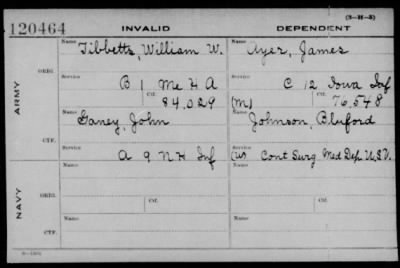 (3-H-5)
120464 INVALID DEPENDENT
Name Name
Tibbetts, William W. Ayer, James
ORIG.
Service Service
B 1 Me H A C 12 Iowa Inf
Ctf. Ctf.
84,029 (M) 76,548
ARMY
Name Name
Ganey, John Johnson, Bluford
CTF.
Service Service
A 9 N H Inf (W) Cont Surg Med Dep U.S.V.
NAVY
Name Name
ORIG.
Ctf. Ctf.
Name Name
CTF.